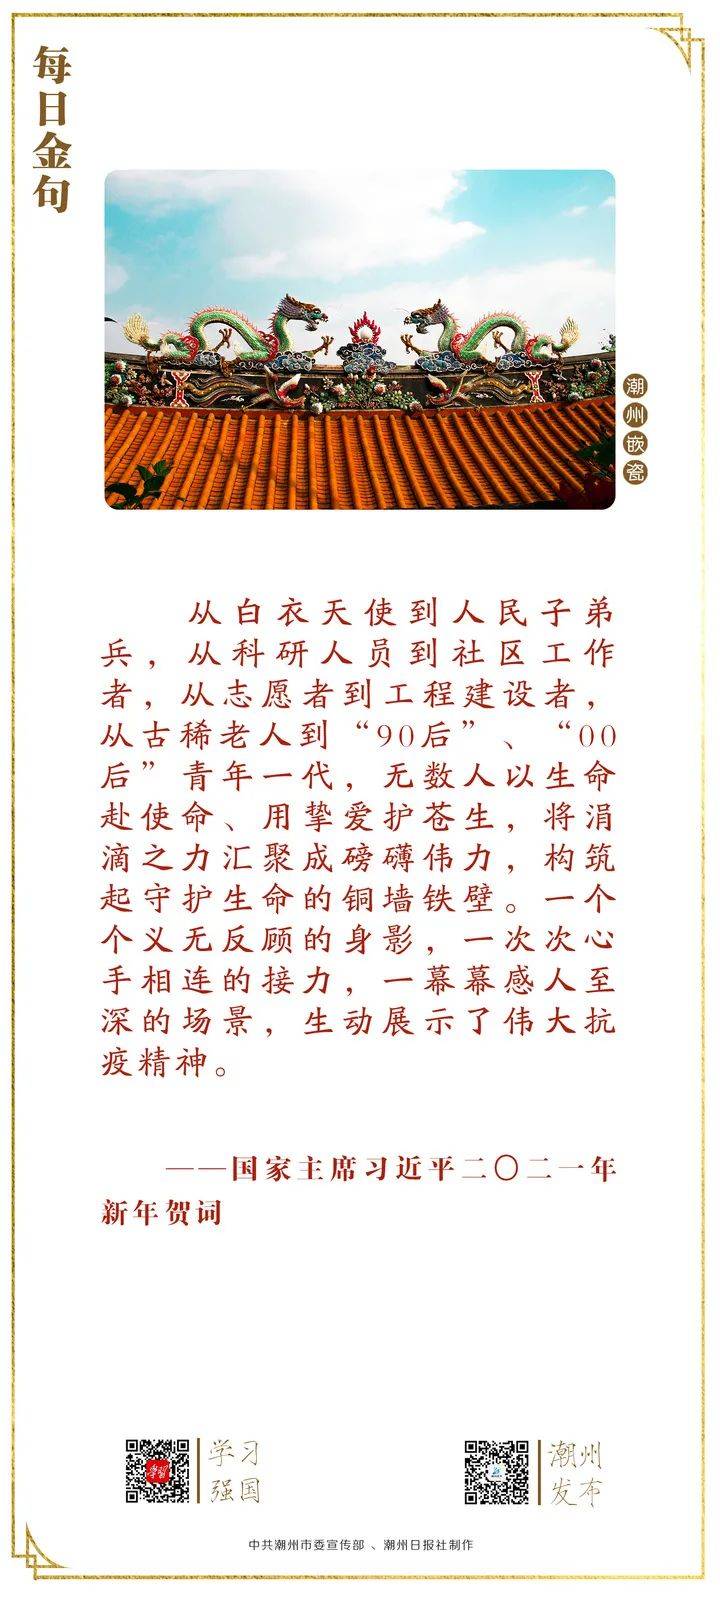 每日金句
潮州嵌瓷
从白衣天使到人民子弟
兵，从科研人员到社区工作
者，从志愿者到工程建设者，
从古稀老人到“90后”、“00
后”青年一代，无数人以生命
赴使命、用挚爱护苍生，将涓
滴之力汇聚成磅礴伟力，构筑
起守护生命的铜墙铁壁。一个
个义无反顾的身影，一次次心
手相连的接力，一幕幕感人至
深的场景，生动展示了伟大抗
疫精神。
——国家主席习近平二〇二一年
新年贺词
学习
强国
潮州
发布
中共潮州市委宣传部 、潮州日报社制作